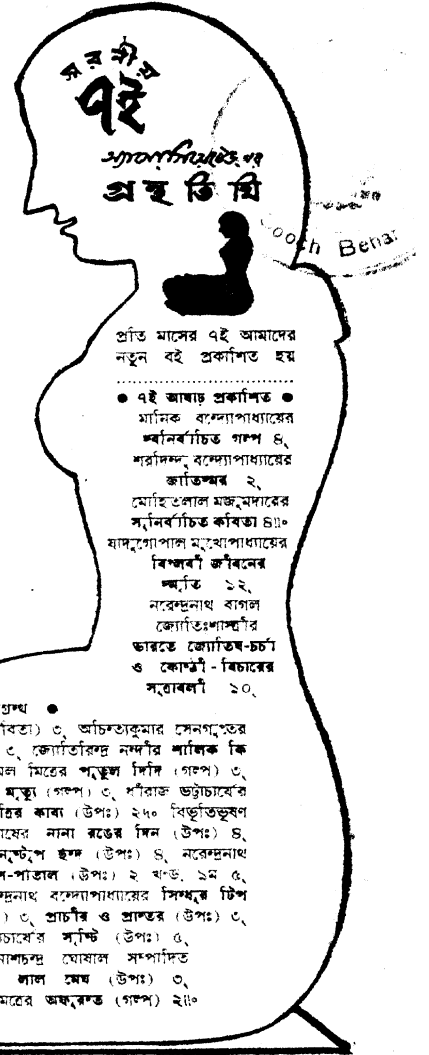 স্মরণীয়
৭ই
অ্যাসোসিয়েটেড-এর
গ্রন্থতিথি
ooch Behar
প্রতি মাসের ৭ই আমাদের
নতুন বই প্রকাশিত হয়
● ৭ই আষাঢ় প্রকাশিত ●
মানিক বন্দ্যোপাধ্যায়ের
স্বনির্বাচিত গল্প ৪৲
শরদিন্দু বন্দ্যোপাধ্যায়ের
জাতিস্মর ২৲
মোহিতলাল মজুমদারের
সুনির্বাচিত কবিতা ৪॥০
যাদুগোপাল মুখোপাধ্যায়ের
বিপ্লবী জীবনের
স্মৃতি ১২৲
নরেন্দ্রনাথ বাগল
জ্যোতিঃশাস্ত্রীর
ভারতে জ্যোতিষ-চর্চা
ও কোষ্ঠী-বিচারের
সূত্রাবলী ১০৲
গ্রন্থ ●
বিতা) ৩৲ অচিন্ত্যকুমার সেনগুপ্তের
৩৲ জ্যোতিরিন্দ্র নন্দীর শালিক কি
মল মিত্রের পুতুল দিদি (গল্প) ৩৲
মৃত্যু (গল্প) ৩৲ ধীরাজ ভট্টাচার্যের
ত্রির কাব্য (উপঃ) ২৸০ বিভূতিভূষণ
োষের নানা রঙের দিন (উপঃ) ৪৲
নুষ্টুপ ছন্দ (উপঃ) ৪৲ নরেন্দ্রনাথ
-পাতাল (উপঃ) ২ খণ্ড, ১ম ৫৲
ন্দ্রনাথ বন্দ্যোপাধ্যায়ের সিন্ধুর টিপ
) ৩৲ প্রাচীর ও প্রান্তর (উপঃ) ৩৲
চার্যের সৃষ্টি (উপঃ) ৫৲
নাশচন্দ্র ঘোষাল সম্পাদিত
লাল মেঘ (উপঃ) ৩৲
মিত্রের অফুরন্ত (গল্প) ২॥০